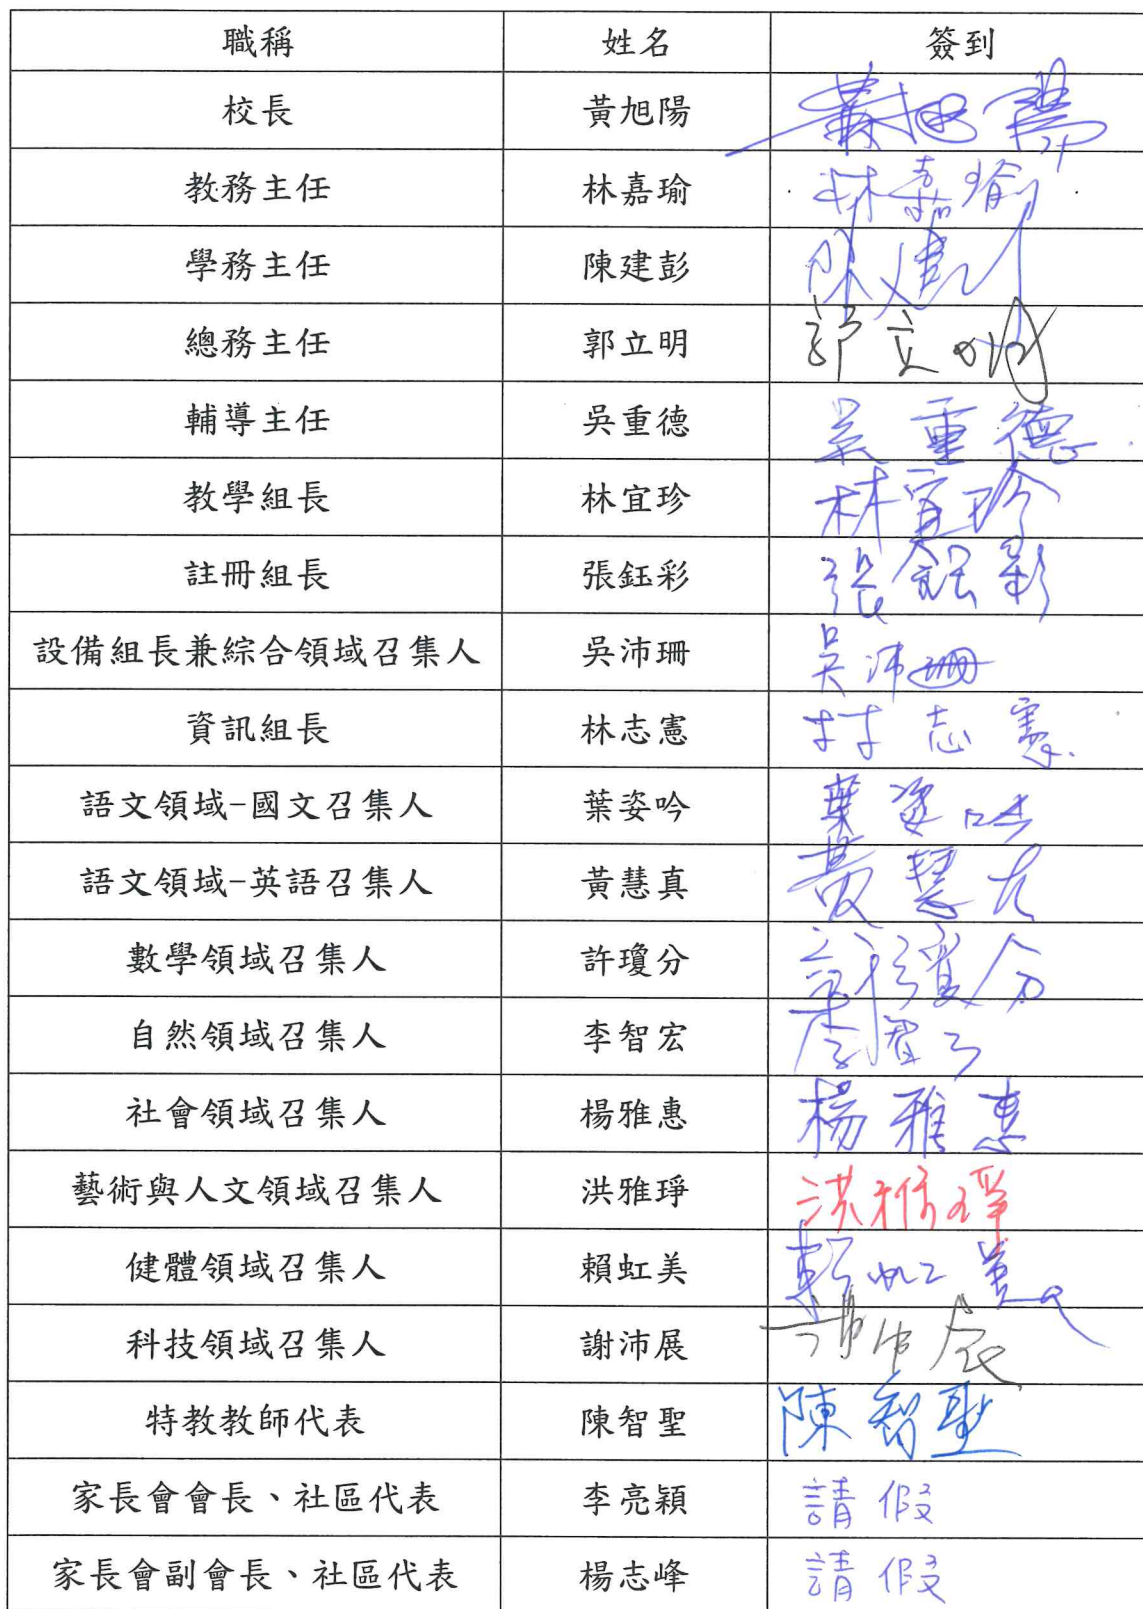 職稱 姓名 簽到
校長 黃旭陽 黃旭陽
教務主任 林嘉瑜 林嘉瑜
學務主任 陳建彭 陳建
總務主任 郭立明 郭立明
輔導主任 吳重德 吳重德
教學組長 林宜珍 林宜珍
註冊組長 張鈺彩 張鈺彩
設備組長兼綜合領域召集人 吳沛珊 吳沛珊
資訊組長 林志憲 林志憲
語文領域-國文召集人 葉姿吟 葉姿吟
語文領域-英語召集人 黃慧真 黃慧
數學領域召集人 許瓊分 許瓊分
自然領域召集人 李智宏 李智宏
社會領域召集人 楊雅惠 楊雅惠
藝術與人文領域召集人 洪雅琤 洪雅琤
健體領域召集人 賴虹美 賴虹美
科技領域召集人 謝沛展 謝沛展
特教教師代表 陳智聖 陳智聖
家長會會長、社區代表 李亮穎 請假
家長會副會長、社區代表 楊志峰 請假